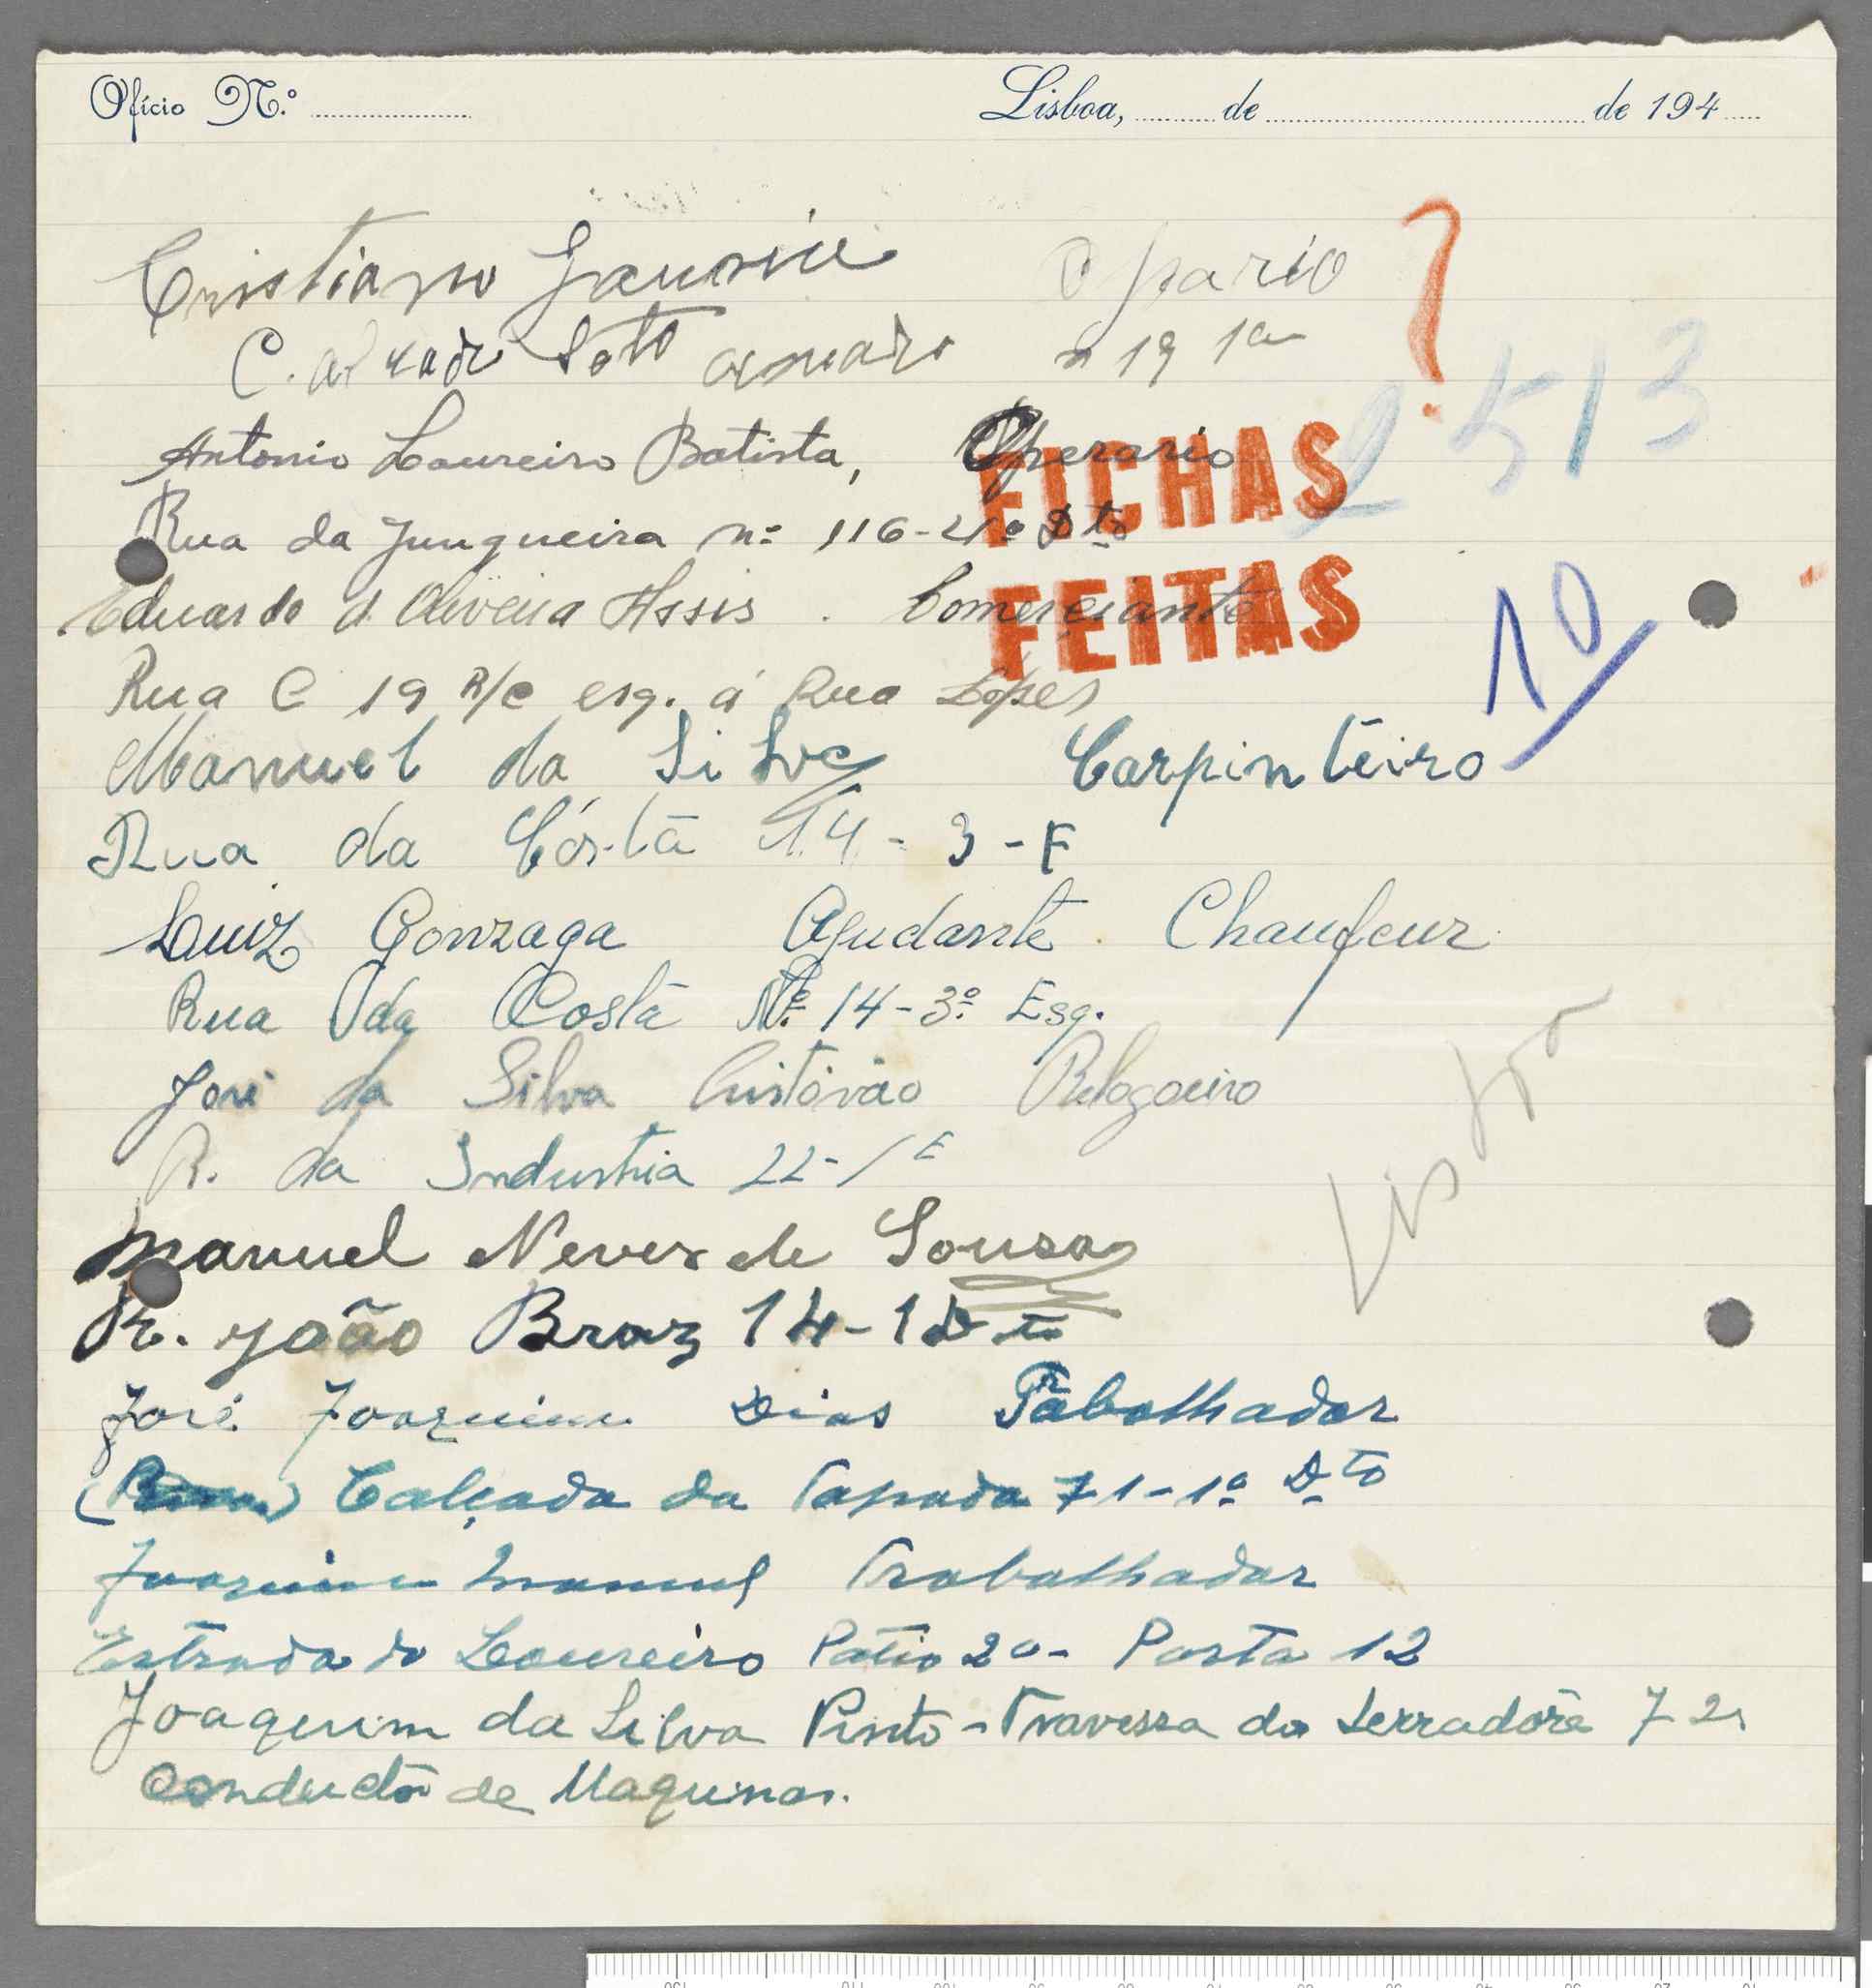 Ofício N.º
Lisboa, de de 194
Cristiano Operario
C. Soto n 19 1º
?
2513
Antonio Loureiro Batista, Operario
FICHAS
Rua da Junqueira nº 116-4º Dto
Eduardo d. Oliveira Assis. Comerçiante
FEITAS
10
Rua C 19 R/c esq. á Rua Lopes
Manuel da Silva Carpinteiro
Rua da Cósta 14-3-E
Luiz Gonzaga Ajudante Chaufeur
Rua da Costa Nº 14-3º Esq.
José da Silva Cristóvão Relogoeiro
R. da Industria 22-1 E
Lisboa
Manuel Neves de Sousa
R. João Braz 14-1 Dto
José Joaquim Dias Trabalhador
Calçada da Tapada 71-1º Dto
Joaquim Manuel Trabalhador
Estrada do Loureiro Patio 20- Porta 12
Joaquim da Silva Pinto - Travessa do 72
Conductor de Maquinas.